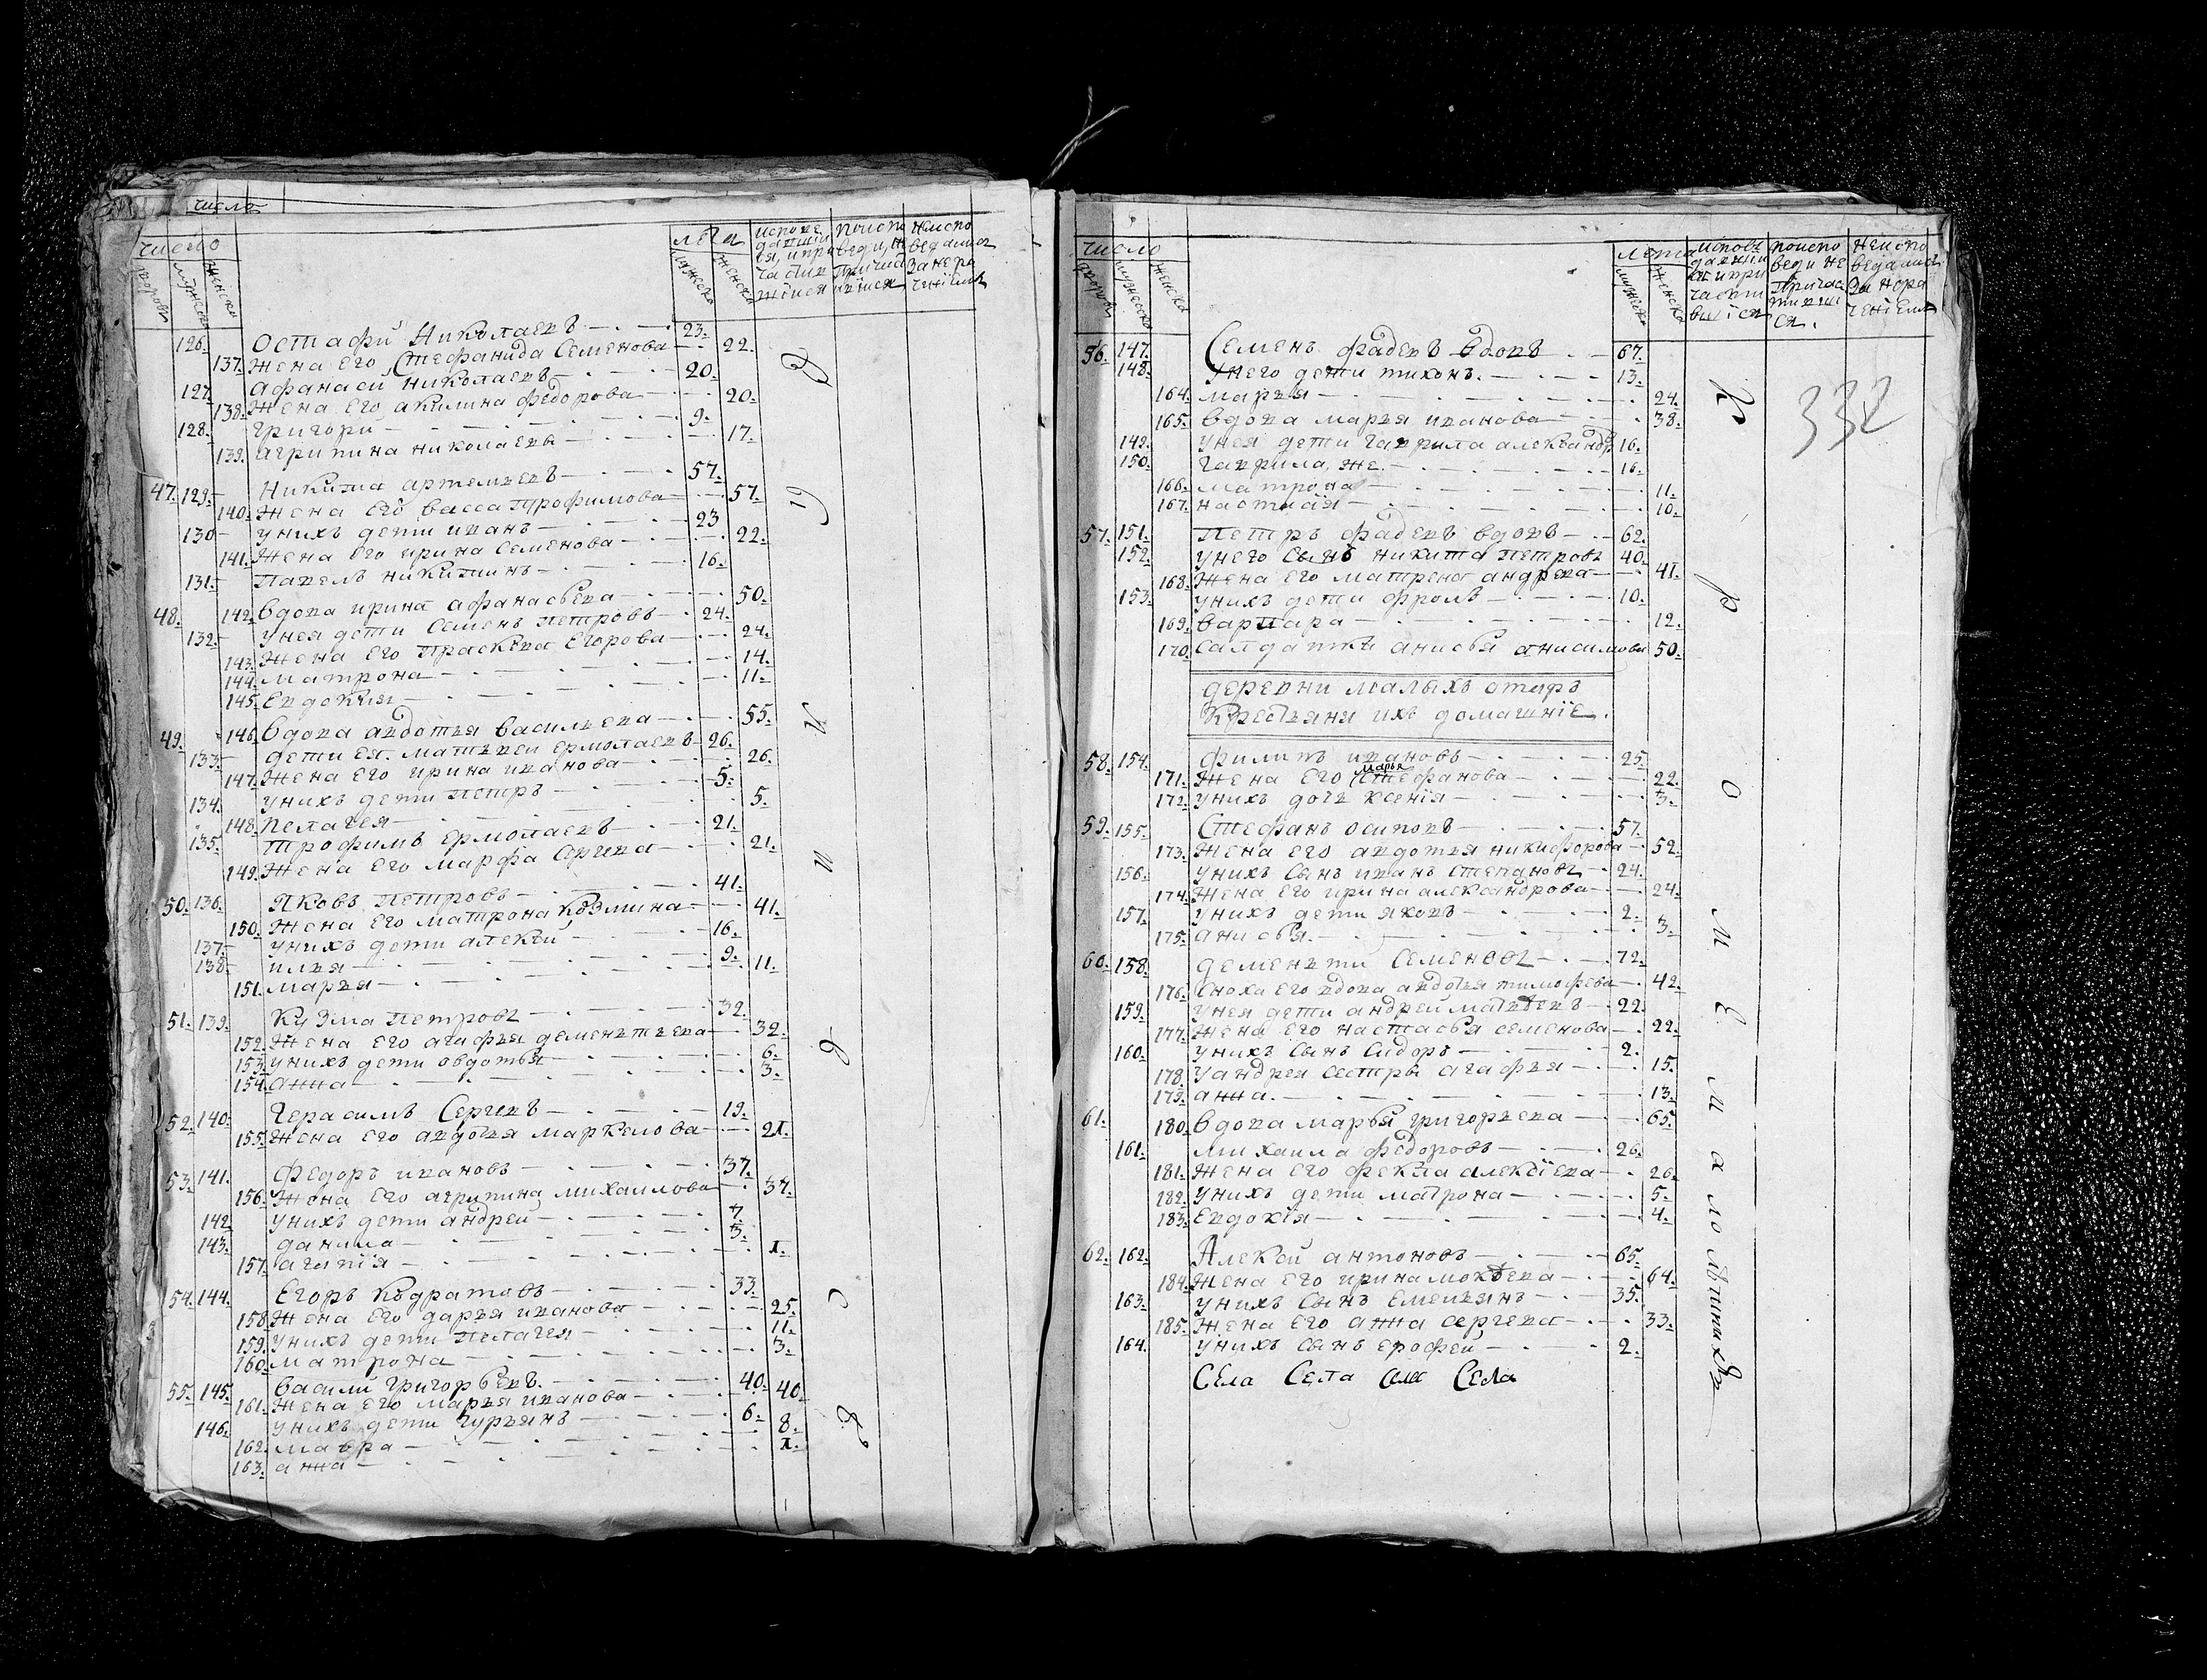 число
число
лета
дворовъ
мужеска
женска
мужеска
женска
126. Остафи Николаевъ 23.
137. Жена Его Стефанида Семенова 22.
127. афанасеи николаевъ 20.
138. Жена Его акилина федорова 20.
128. григори 9.
139. агрипина николаева 17.
47. 129. Никита артемьевъ 57.
140. Жена Его васса трофимова 57.
130 унихъ дети иванъ 23
141. Жена Его ирина Семенова 22.
131. павелъ никитинъ 16.
48. 142. вдова ирина афанасьева 50.
132. унея дети Семенъ петровъ 24.
143. Жена Его Прасковя Егорова 24.
144. матрона 14.
145. Евдокия 11.
49. 146. вдова авдотья васильева 55.
133. дети ея. матвеи ермолаевъ 26.
147. Жена Его ирина иванова 26.
134. унихъ дети петръ 5.
148. пелагея 5.
135. трофимъ Ермолаевъ 21.
149. Жена Его марфа 21.
50. 136. Яковъ петровъ 41.
150. Жена Его матрона Козмина 41.
137. унихъ дети алексеи 16.
138. илья 9.
151. марья 11.
51. 139. Кузма петровъ 32.
152. Жена Его агафья дементьева 32.
153. унихъ дети овдотья 6.
154. анна 3.
52. 140. Герасимъ Сергевъ 19.
155. Жена Его авдотья маркелова 21.
53. 141. Федоръ ивановъ 37.
156. Жена Его агрипина михаилова 37.
142. унихъ дети андреи 7.
143. данила 3.
157. агапїя 1.
54. 144. Егоръ Кодратовъ 33.
158. Жена Его дарья иванова 25.
159. унихъ дети пелагея 11.
160. матрона 3.
55. 145. василий григорьевъ. 40.
161. Жена Его марья иванова 40.
146. унихъ дети гурьянъ 6.
162. мавра 8.
163. анна 1.
число
лета
дворовъ
мужеска
женска
мужеска
женска
332
56. 147. Семенъ фадевъ вдовъ 67.
148. унего дети тихонъ. 13.
164. марья 24.
165. вдова марья иванова 38.
149. унея дети гаврила александр 16.
150. гаврила, же. 16.
166. матрона 11.
167. настасїя 10.
57. 151. Петръ фадевъ вдовъ 62.
152. унего сынъ никита петровъ 40.
168. Жена Его матрена андрева 41.
153. унихъ дети фролъ 10.
169. варвара 12.
170. салдатка анисья анисимова 50.
деревни малыхъ отаръ
Крестьяни ихъ домашнїе.
58. 154. филипъ ивановъ 25.
171. Жена Его марья Стефанова 22.
172. унихъ дочь ксенїя 3.
59. 155. Стефанъ осиповъ 57.
173. Жена Его авдотья никифорова 52.
156. унихъ сынъ иванъ степановъ 24.
174. Жена Его ирина александрова 24.
157. унихъ дети яковъ 2.
175. анисья. 3.
60. 158. дементи Семеновъ 72.
176. сноха Его вдова авдотья тимофева 42.
159. унея дети андреи матвевъ 22.
177. Жена Его настасья семенова 22.
160. унихъ сынъ сидоръ 2.
178. уандрея сестры агафья 15.
179. анна. 13.
61. 180. вдова марья григорьева 65.
161. михаила федоровъ 26.
181. Жена Его фекла алексїева 26.
182. унихъ дети матрона 5.
183. Евдокїя 4.
62. 162. Алексеи антоновъ 65.
184. Жена Его ирина 64.
163. унихъ сынъ Емельянъ 35.
185. Жена Его анна сергева 33.
164. унихъ сынъ ерофеи 2.
Села Села Села
К р о м е м а л о л е т н и х ъ